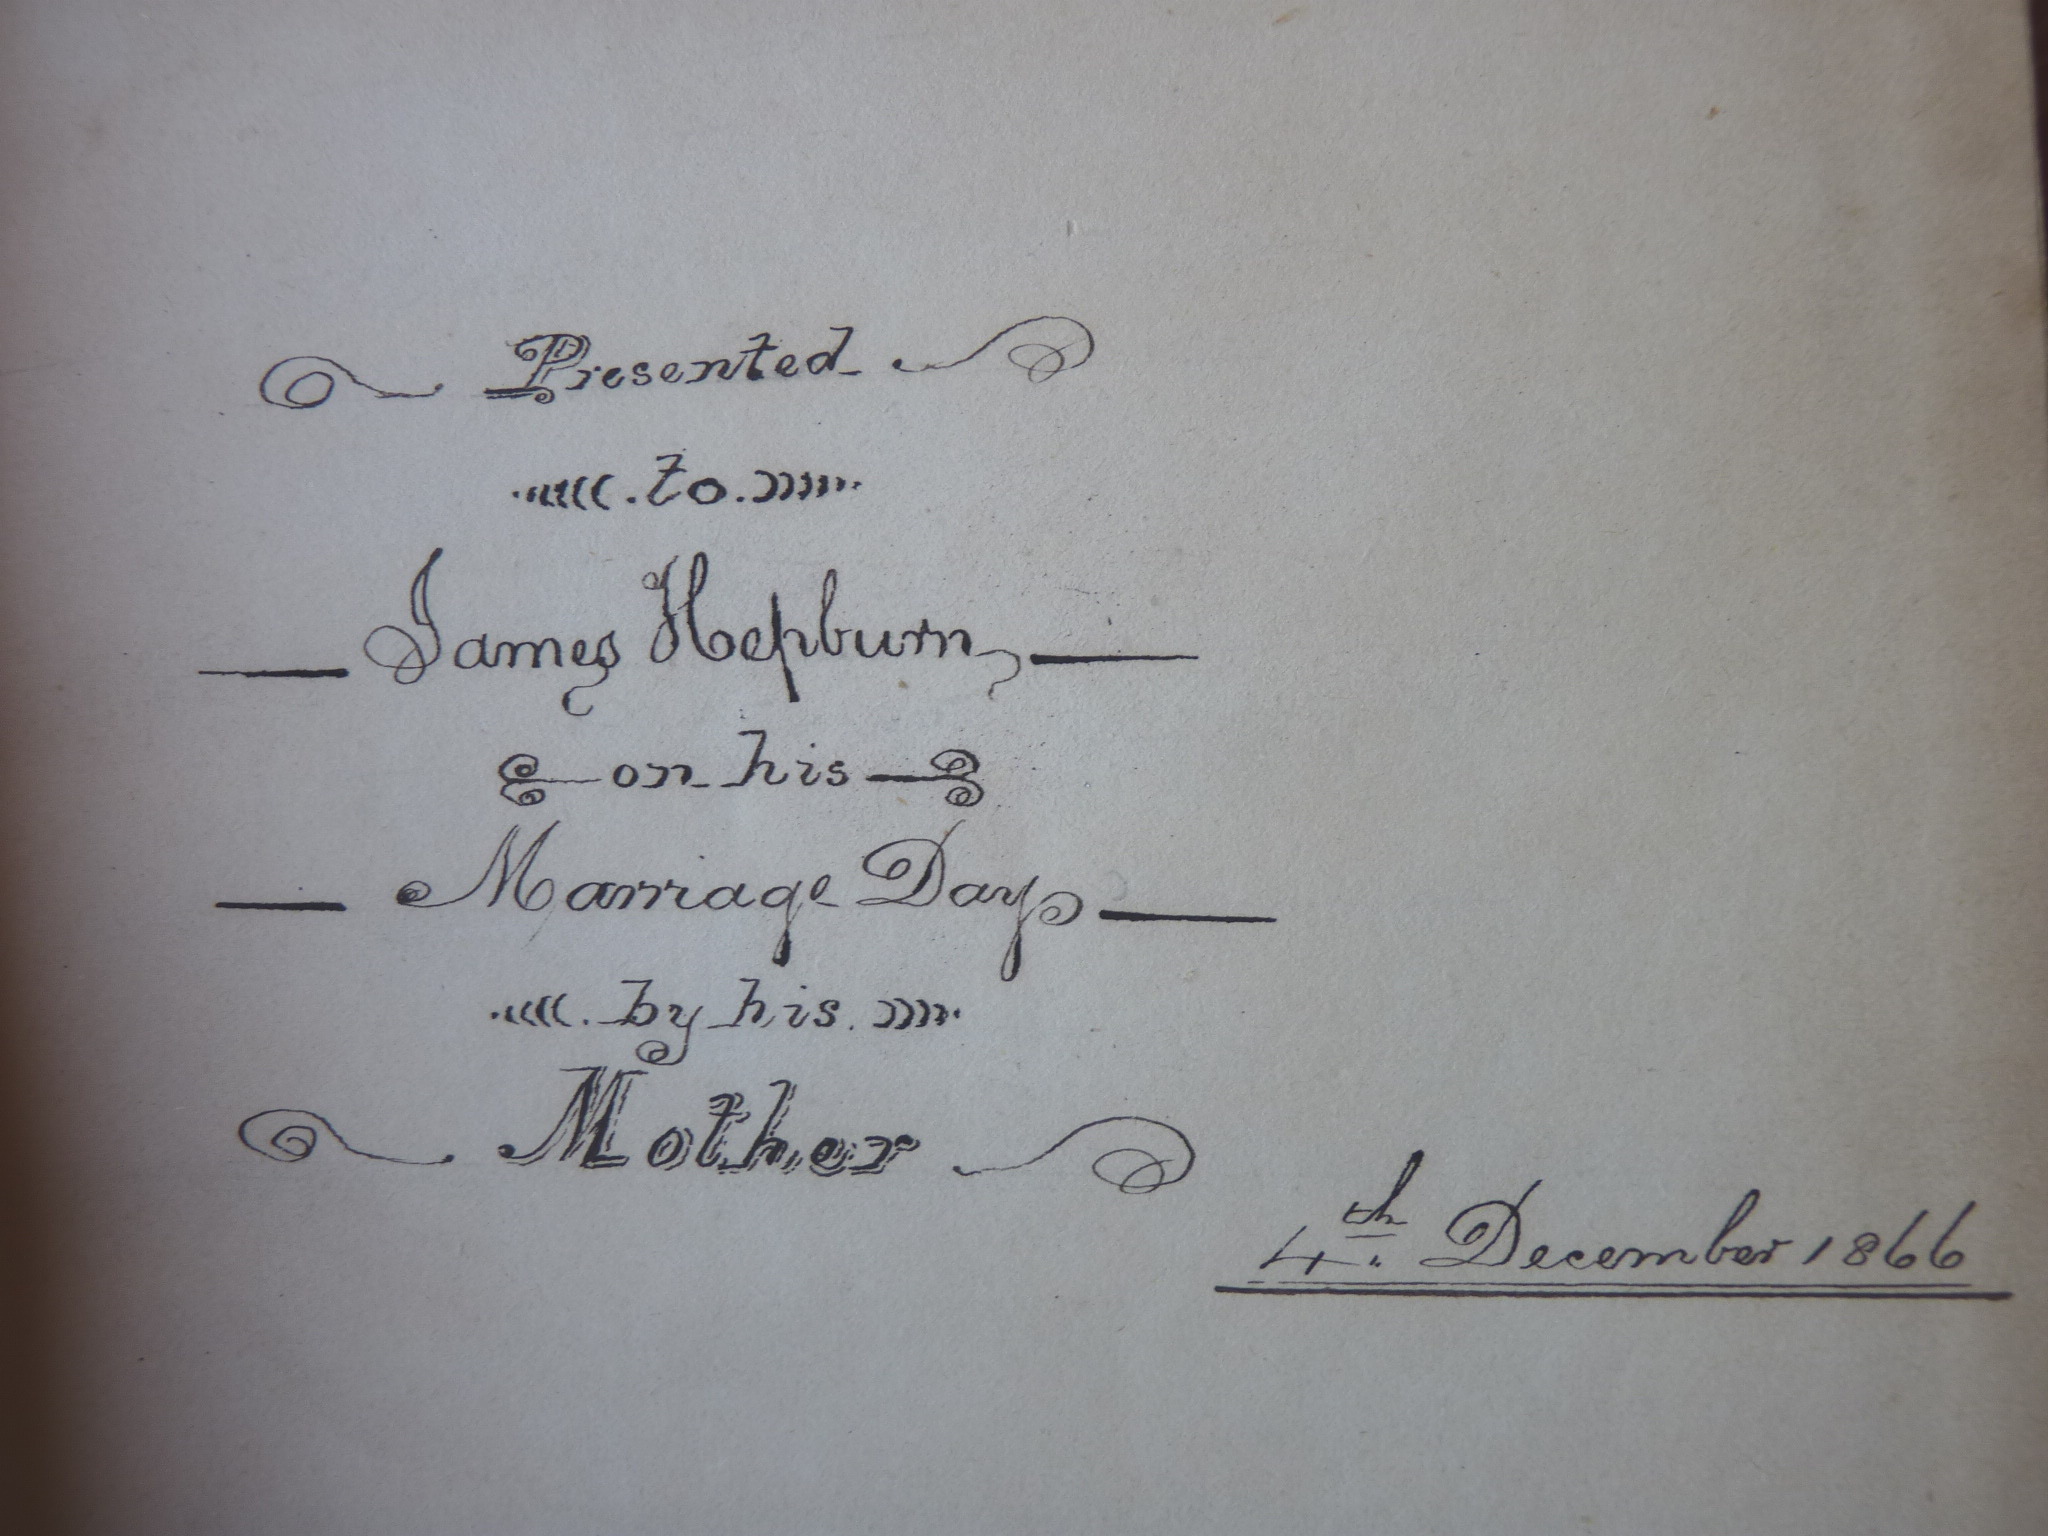 Presented
to
James Hepburn
on his
Marriage Day
by his
Mother
4th December 1866